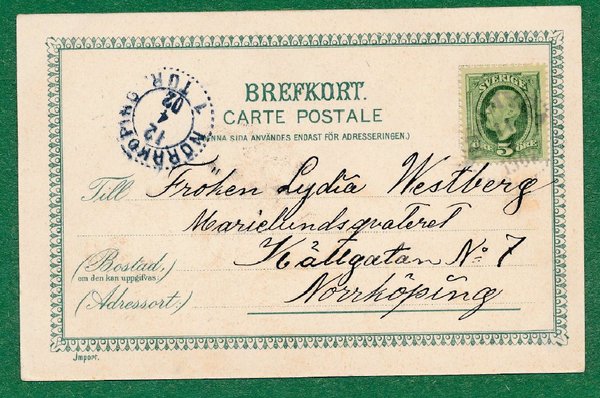 BREFKORT.
CARTE POSTALE
(DENNA SIDA ANVÄNDES ENDAST FÖR ADRESSERINGEN.)
SVERIGE
5 ÖRE
NORRKÖPING
7 TUR.
12
4
02
Till Fröken Lydia Westberg
Marielundsqvateret
Källgatan No 7
(Bostad,
om den kan uppgifvas:)
(Adressort:)
Norrköping
Import.